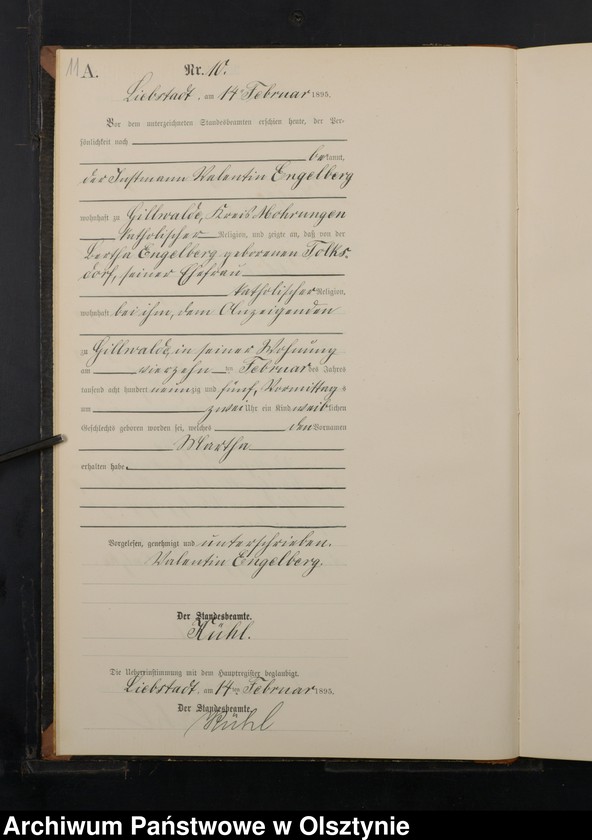 11 A. Nr. 10.
Liebstadt, am 14ten Februar 1895.
Vor dem unterzeichneten Standesbeamten erschien heute, der Per-
sönlichkeit nach
bekannt,
der Instmann Valentin Engelberg
wohnhaft zu Gillwalde, Kreis Mohrungen
katholischer Religion, und zeigte an, daß von der
Bertha Engelberg geborenen Folks-
dorf, seiner Ehefrau
katholischer Religion,
wohnhaft bei ihm, dem Anzeigenden
zu Gillwalde, in seiner Wohnung
am vierzehnten Februar des Jahres
tausend acht hundert neunzig und fünf, Vormittags
um zwei Uhr ein Kind weiblichen
Geschlechts geboren worden sei, welches den Vornamen
Martha
erhalten habe.
Vorgelesen, genehmigt und unterschrieben.
Valentin Engelberg.
Der Standesbeamte.
Kühl.
Die Uebereinstimmung mit dem Hauptregister beglaubigt.
Liebstadt, am 14ten Februar 1895.
Der Standesbeamte.
Kühl
Archiwum Państwowe w Olsztynie